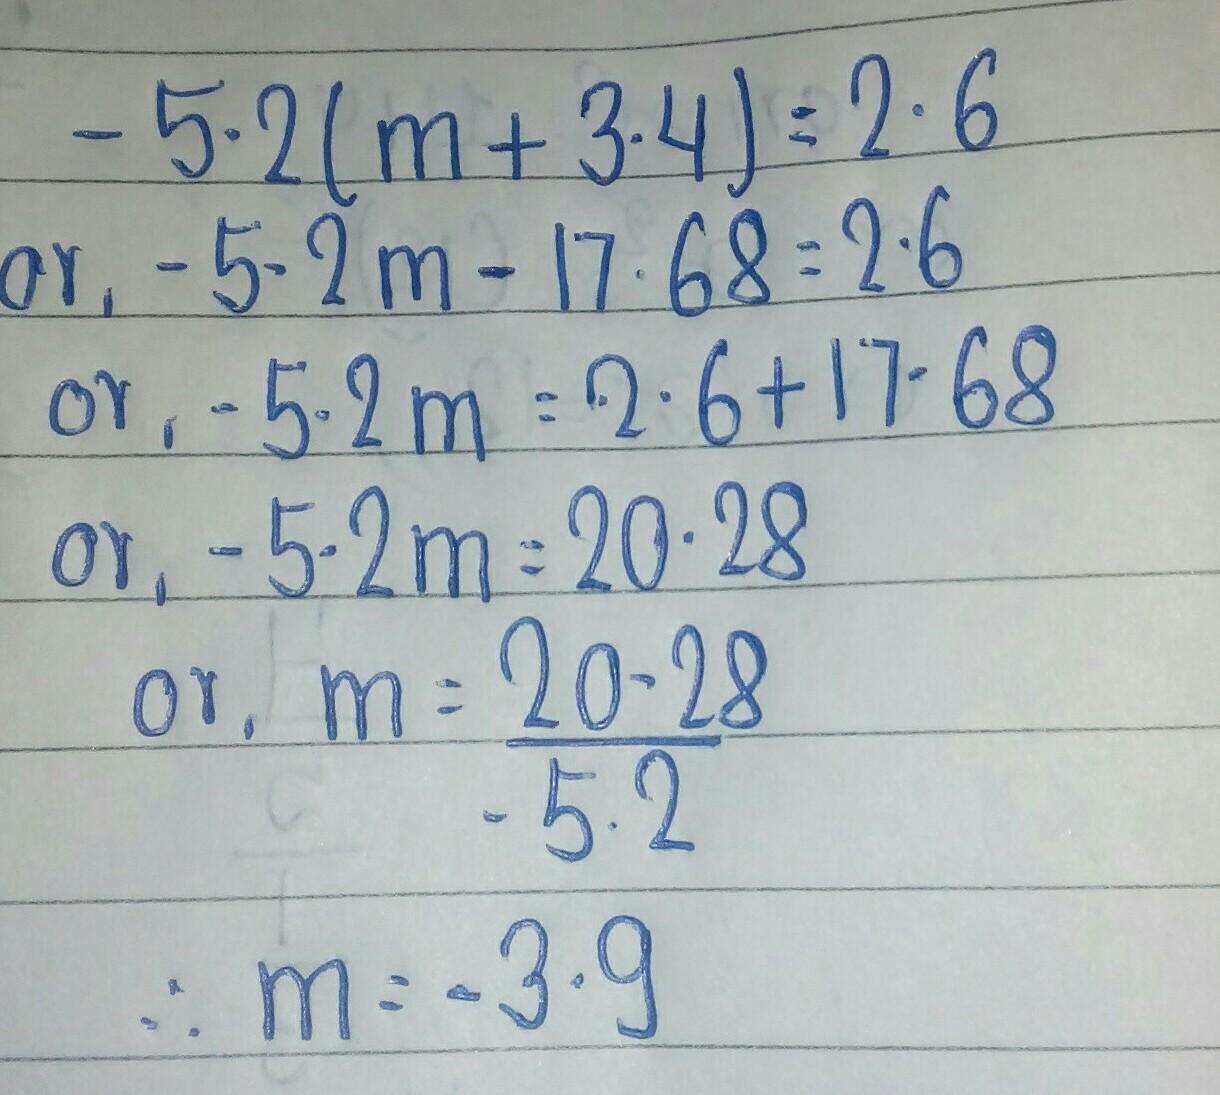 -5·2(m+3·4)=2·6
or, -5·2m-17·68=2·6
or, -5·2m=2·6+17·68
or, -5·2m=20·28
or, m=20·28
-5·2
∴ m=-3·9